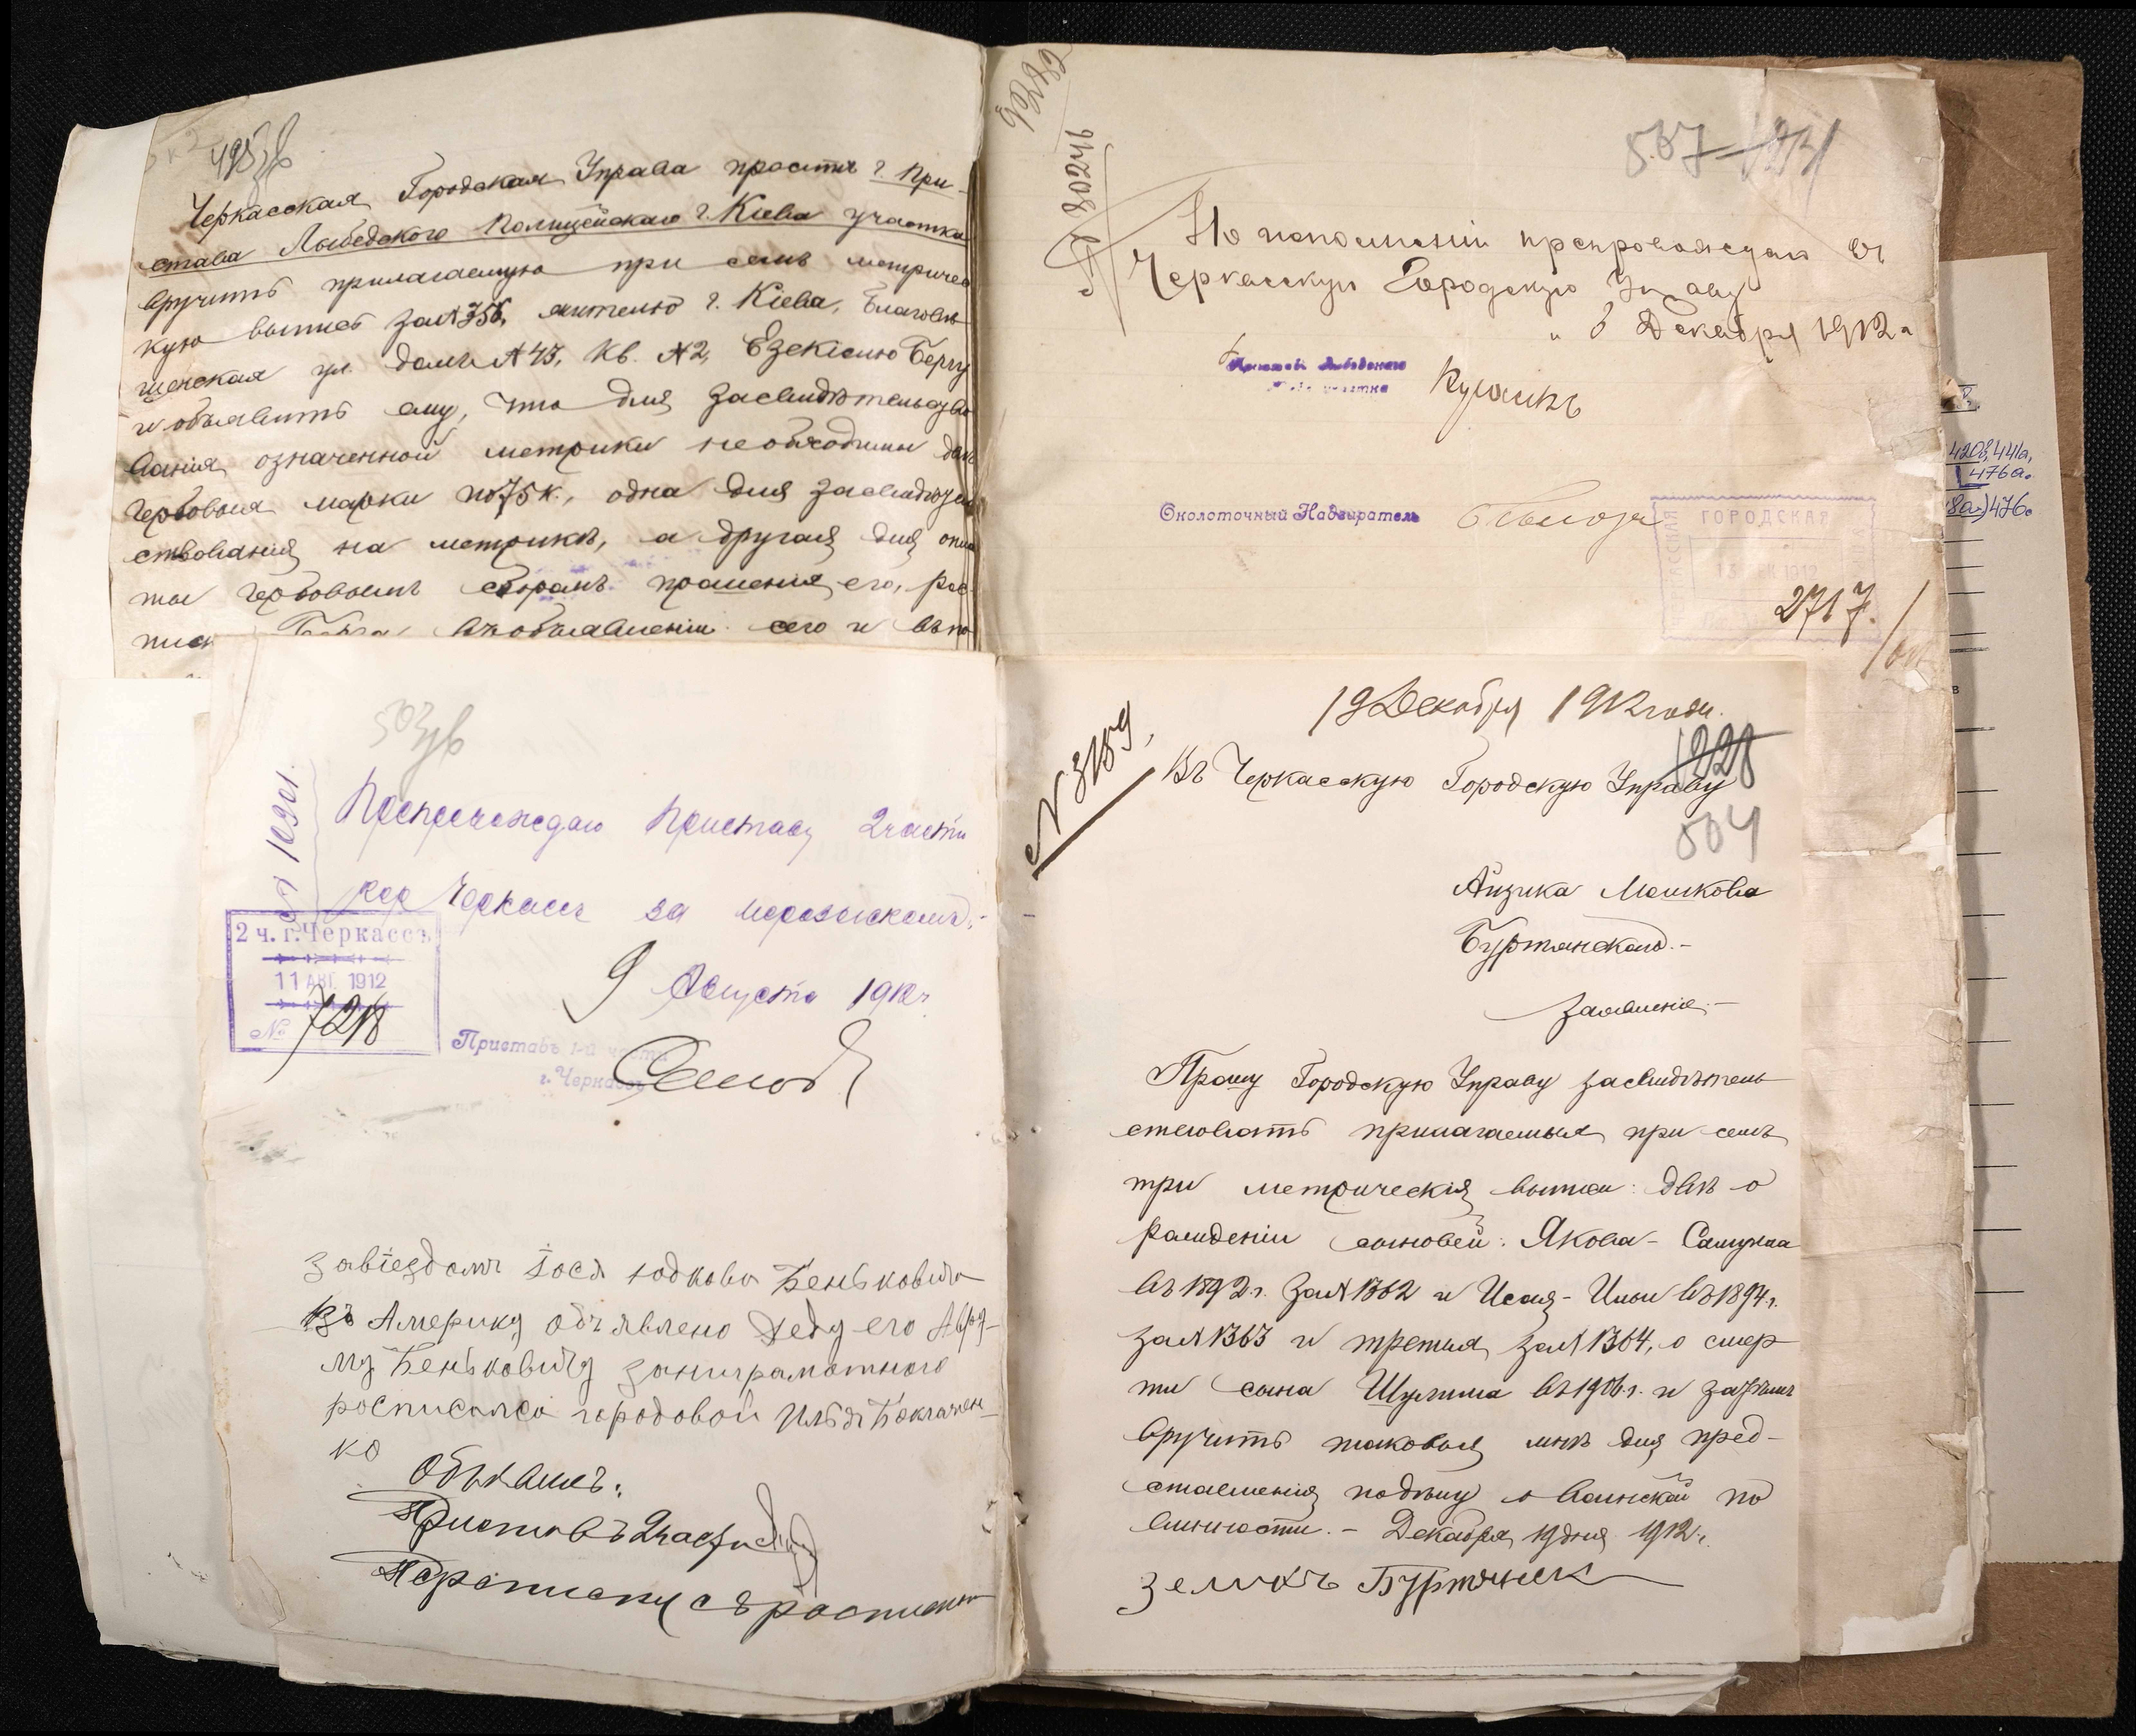 495/в
Черкасская Городская Управа просит г. При-
става Лыбедского Полицейскаго г. Кіева участка
вручить прилагаемую при семъ метричес
кую выпись за № 356, жителю г. Кіева, Благовѣ
щенская ул. домъ № 43, кв. № 2, Езекіелю Бергу
и объявить ему, что для засвидѣтельство
ванія означенной метрики необходимы двѣ
гербовыя марки по 75 к., одна для засвидѣтель
ствованія на метрикѣ, а другая для опла
ты гербовымъ сборомъ прошенія его, рос-
въ объявленіи сего и въ по
№ 80244
567
По исполненіи препровождаю въ
Черкасскую Городскую Управу
" 6 Декабря 1912 г
Приставъ Лыбедского
участка
Околоточный Надзиратель
ГОРОДСКАЯ
1912
2717.
420в, 441а,
476а.
476
503/в
№ 10901
Препровождаю Приставу 2 части
гор Черкассъ за
9 Августа 1912 г.
2 ч. г. Черкассъ
11 АВГ. 1912
№ 7218
Приставъ 1-й части
г. Черкассъ
завіездомъ Іося юдкова Беньковича
въ Америку объявлено деду его Авра-
му Беньковичу заниграмотного
росписался городовой
ко
Объявилъ:
Приставъ 2 части
19 Декабря 1912 года.
№ 3189,
Въ Черкасскую Городскую Управу
1228
504
Айзика Мошкова
Буртянскаго.-
Заявленіе.-
Прошу Городскую Управу засвидѣтель
ствовать прилагаемыя при семъ
три метрическія выписи: двѣ о
рожденіи сыновей: Якова - Самуила
въ 1892 г. за № 1362 и Исая - Ильи въ 1894 г.
за № 1363 и третья за № 1364, о смер
ти сына Шулима въ 1906 г. и затѣмъ
вручить таковыя мнѣ для пред-
ставленія по дѣлу о воинской по
винности. - Декабря 19 дня 1912 г.
Зеликъ Буртянск